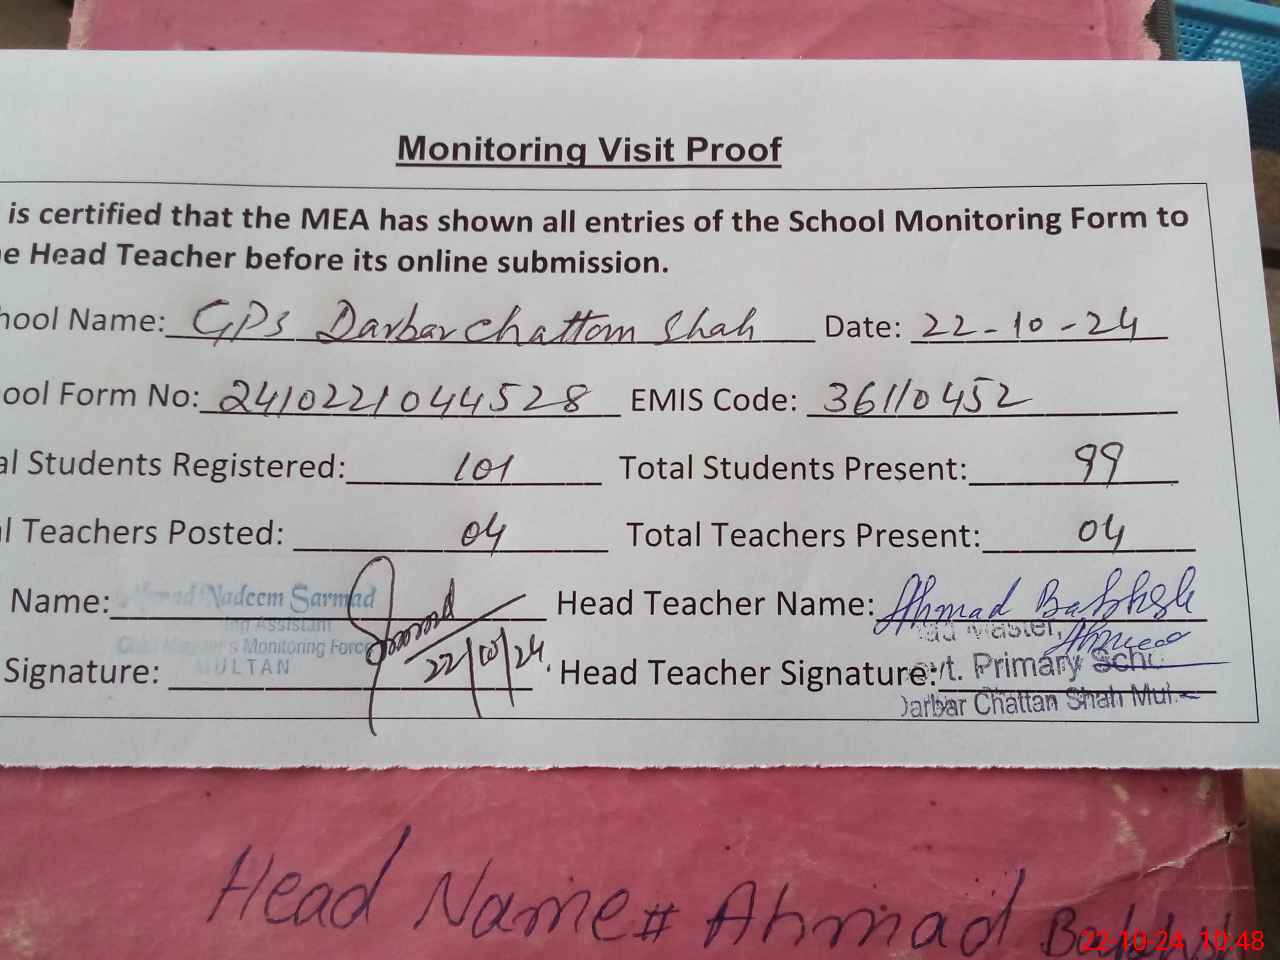 Monitoring Visit Proof
is certified that the MEA has shown all entries of the School Monitoring Form to
e Head Teacher before its online submission.
hool Name: GPS Darbar Chattom Shah Date: 22-10-24
ool Form No: 2410221044528 EMIS Code: 36110452
al Students Registered: 101 Total Students Present: 99
l Teachers Posted: 04 Total Teachers Present: 04
Name: Ahmad Nadeem Sarmad Head Teacher Name: Ahmad Bakhsh
ing Assistant
Head Master,
s Monitoring Force
Signature: MULTAN 22/10/24. Head Teacher Signature: vt. Primary Scho
Darbar Chattan Shah Mul.
Head Name# Ahmad Bakhsh
22-10-24 10:48